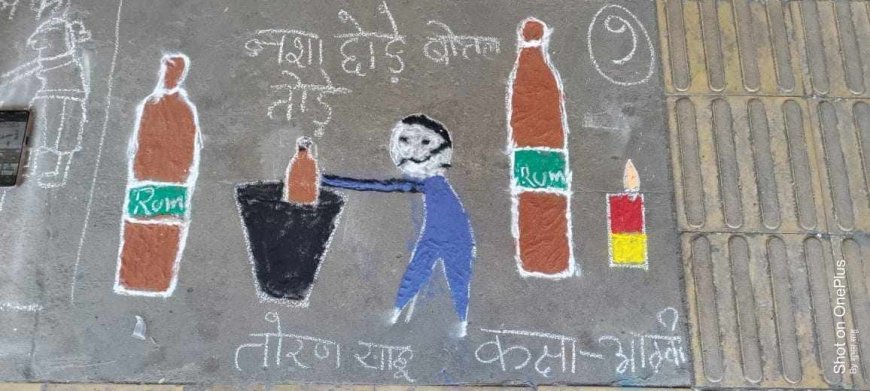 नशा छोड़े बोतल
तोड़े
७
Rum
Rum
तोरण साहू
कक्षा-आठवीं
Shot on OnePlus